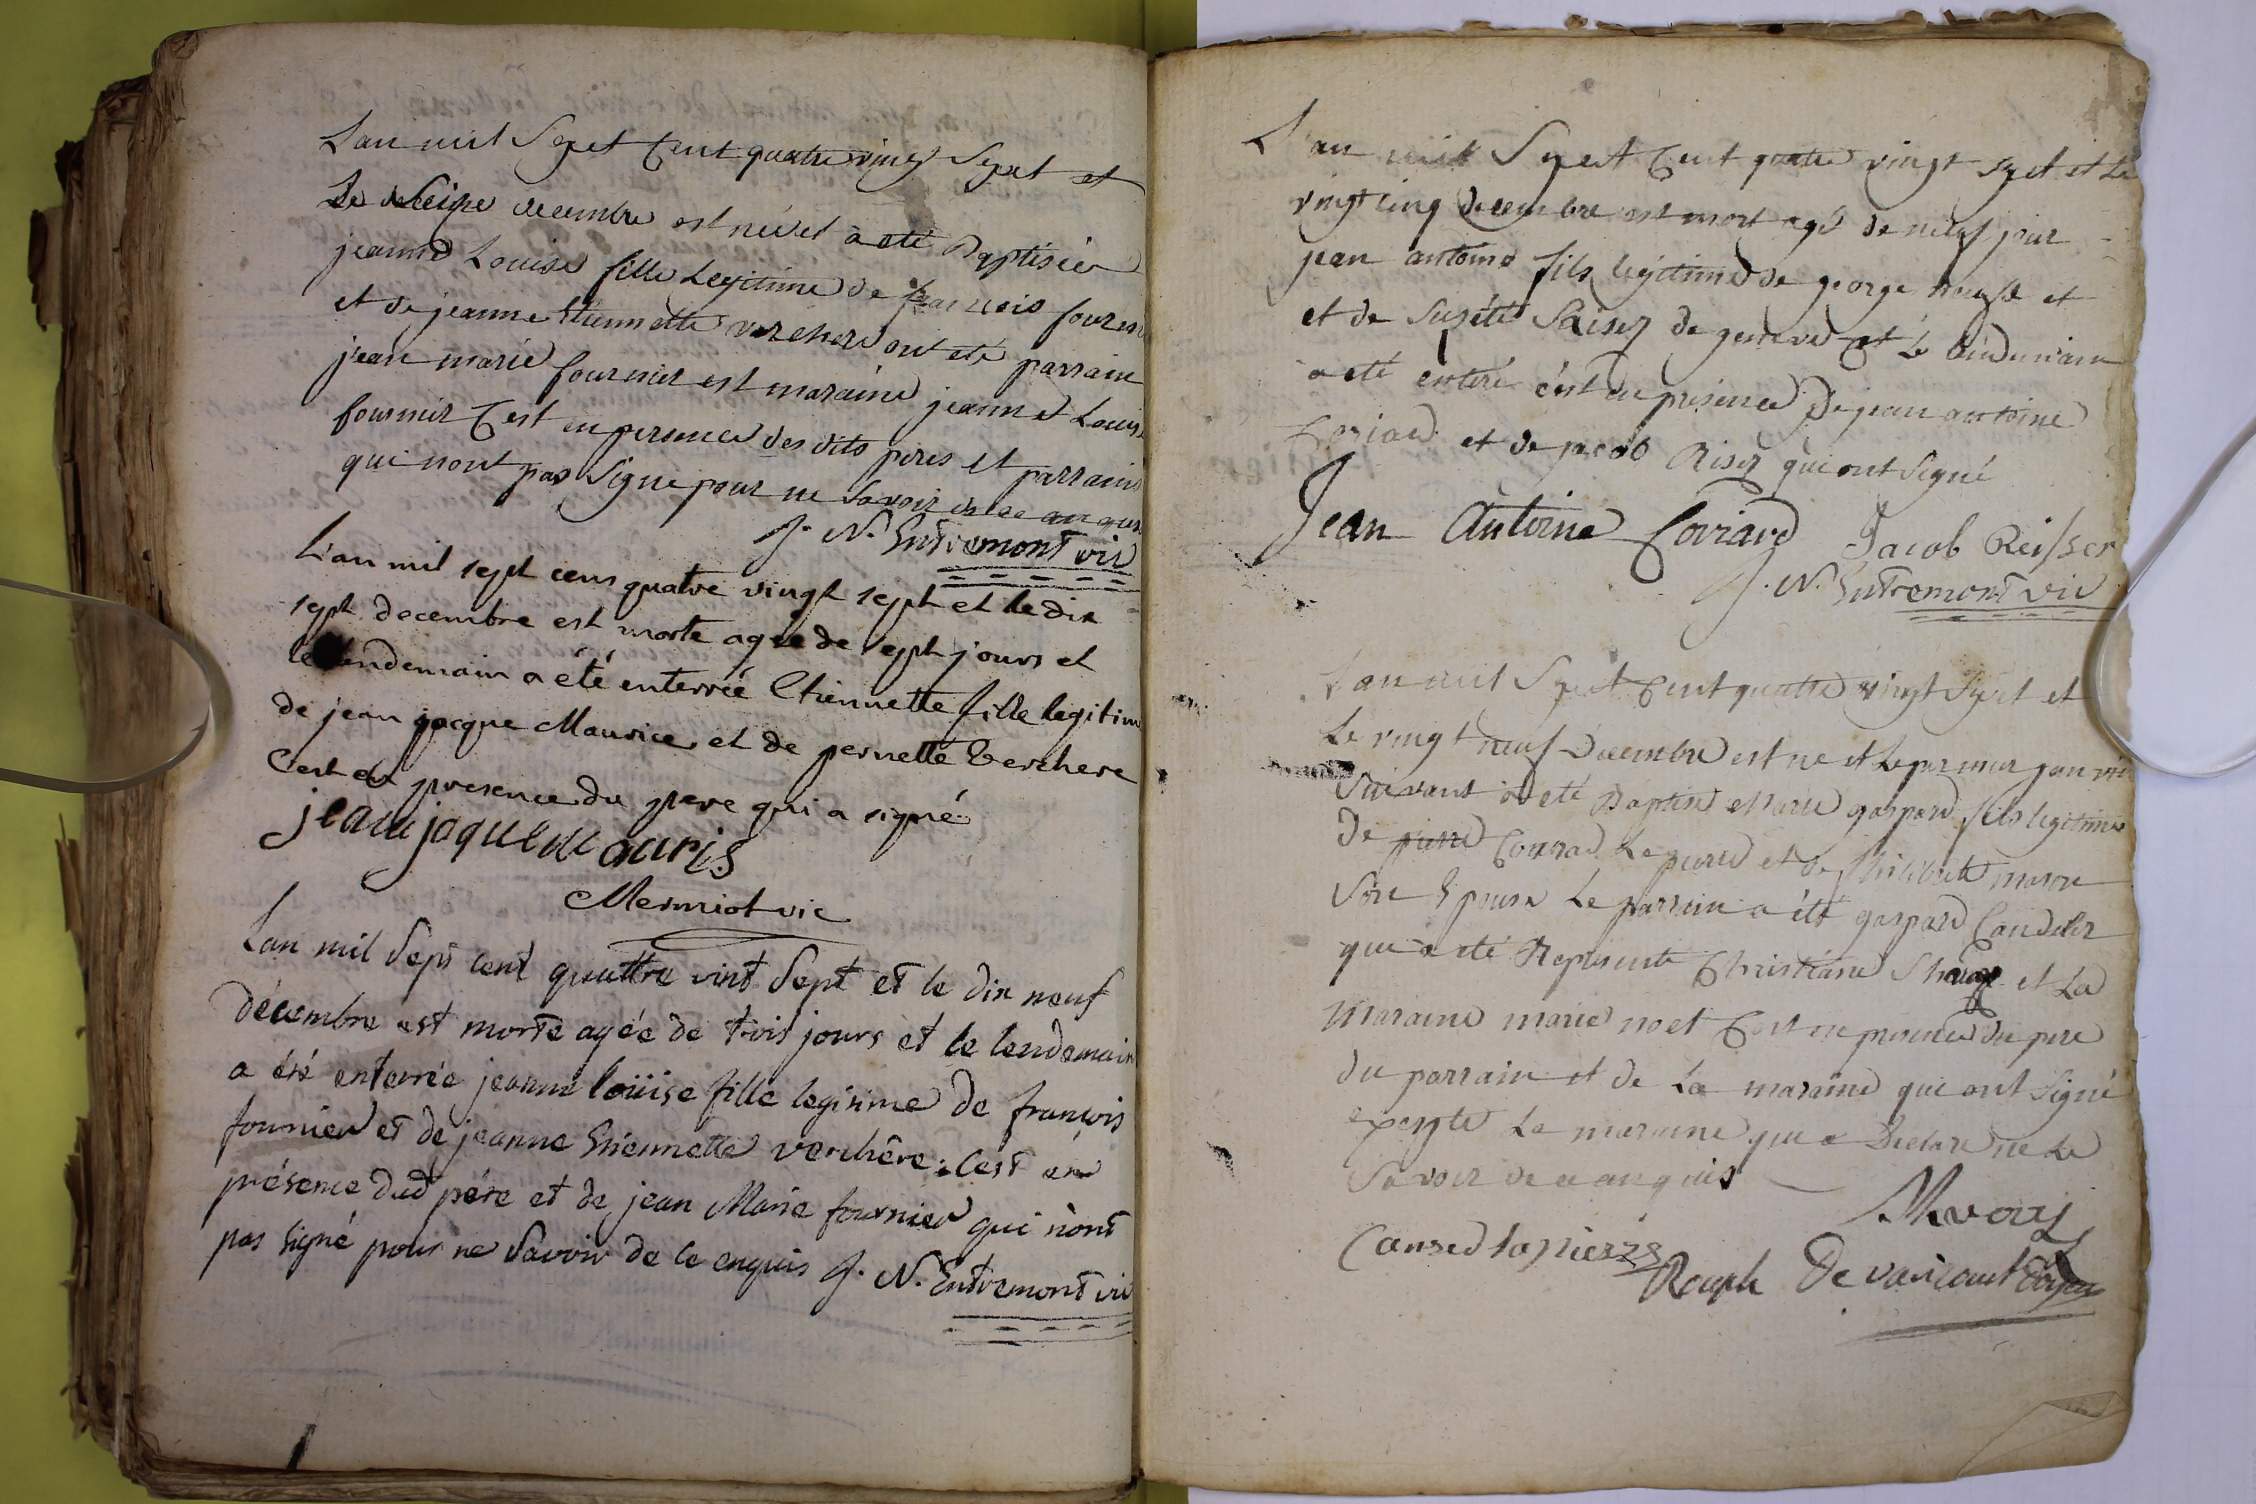 L'an mil Sepet Cent quatre vingt Sepet et
Le seize decembre est né et a eté Baptisée
jeanne Louise fille Legitime de francois fournier
et de jeanne Etiennette verchere ont eté parrain
jean marie fournier est maraine jeanne Louise
fournier C'est en personce des dits peres et parrains
qui nont pas Signe pour ne Savoir de ce anquis
J. N. Entremont vic
L'an mil sept cens quatre vingt sept et le dix
sept decembre est morte agée de sept jours et
le lendemain a été enterrée Etiennette fille legitime
de jean jacque Maurice et de pernette Verchere
C'est en presence du pere qui a signé
jean jaque mauris
Mermiot vic
L'an mil Sept cent quattre vint Sept et le dix neuf
décembre est morte agée de trois jours et le lendemain
a été enterrée jeanne loüise fille legitime de françois
fournier et de jeanne Etiennette verchère : C'est en
présence dud père et de jean Marie fournier qui n'ont
pas signé pour ne Savoir de ce enquis J. N. Entremont vic
L'an mil Sepet Cent quatre vingt sepet et Le
vingt cinq decembre est mort agé de neuf jour
jean antoine fils legitime de george et
et de Suzété de geneve et Le lendemain
a eté entéré c'est en présence De jean antoine
Coriard et de jacob Riser qui ont Signé
Jean Antoine Coriard Jacob Reisser
J. N. Entremont vic
L'an mil Sepet Cent quatre vingt Sepet et
Le vingt neuf Décembre est ne et Le permier janvier
Suivant a eté Baptisé Marie gaspard fils legitime
De pierre Conrad La pierre et de Philiberte
Son Epouse Le parrain a été gaspard
qui a eté Representé Christiane et La
Maraine marie noet C'est en presence du pere
du parrain et de La maraine qui ont Signé
exepte La maraine qui a Declare ne Le
Savoir de ce anquis
Conred lapierre
Rouph De vaircourt Doyen